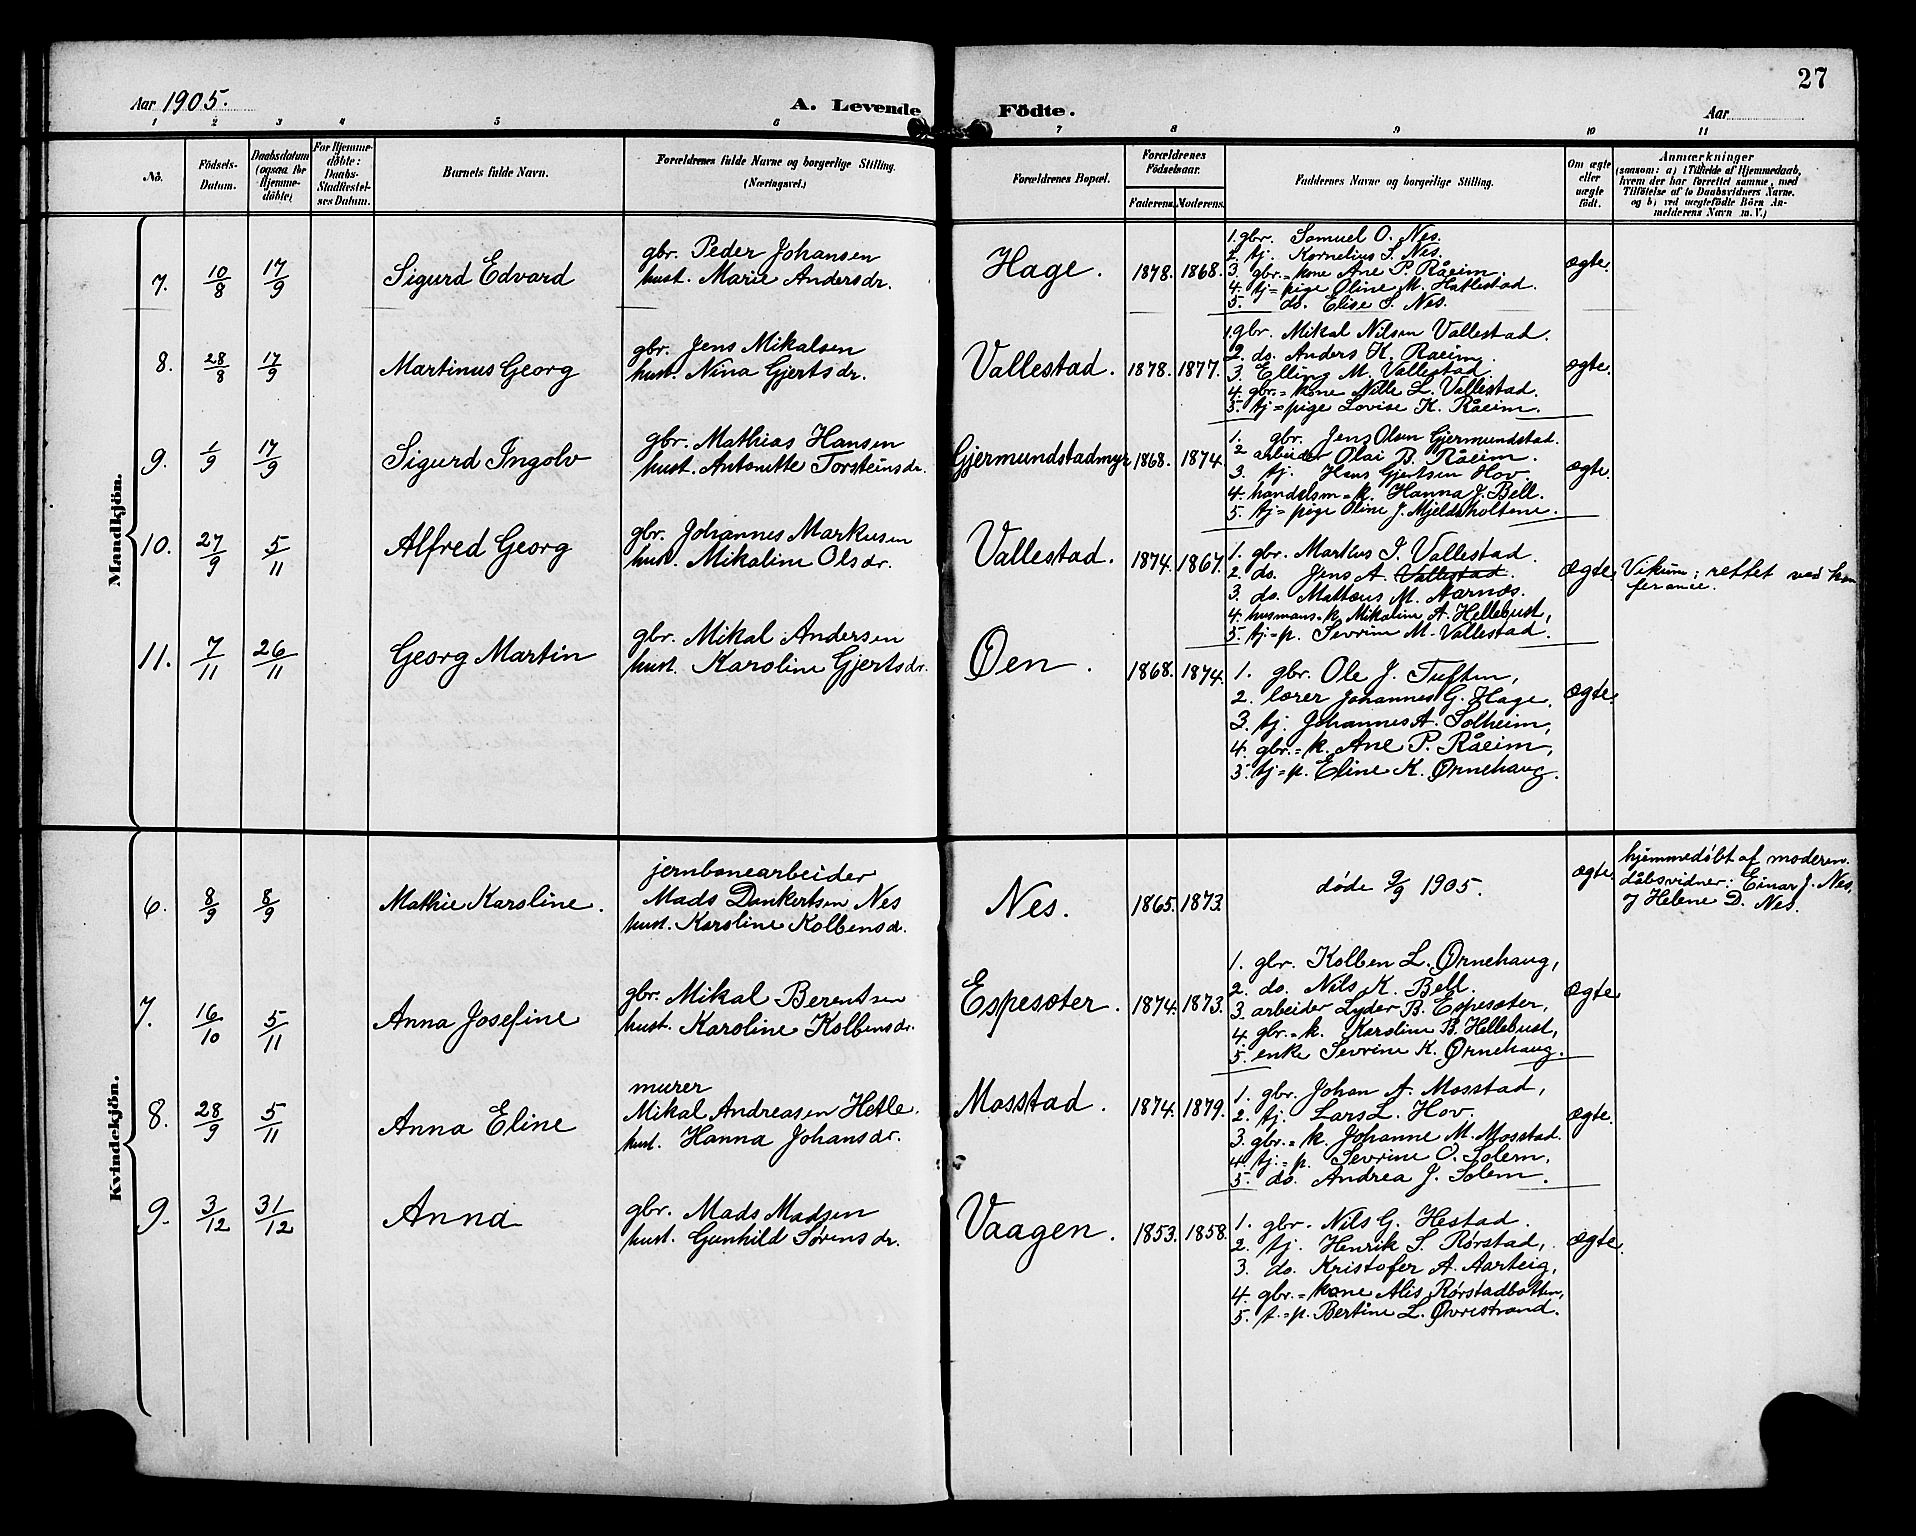 27
Aar 1905.
A. Levende Födte.
Aar
1 2 3 4 5 6 7 8 9 10 11
No.
Födsels-Datum.
Daabsdatum (ogsaa for Hjemme-döbte)
For Hjemme-döbte: Daabs-Stadfæstelses Datum.
Barnets fulde Navn.
Forældrenes fulde Navne og borgerlige Stilling. (Næringsvei.)
Forældrenes Bopæl.
Forældrenes Födselsaar.
Faderens. Moderens.
Faddernes Navne og borgerlige Stilling.
Om ægte eller uægte födt.
Anmærkninger
(saasom: a) i Tilfælde af Hjemmedaab, hvem der har forrettet samme, med Tilföielse af to Daabsvidners Navne. og b) ved uægtefödte Börn Anmelderens Navn m. V.)
Mandkjön.
7. 10/8 17/9 Sigurd Edvard
gbr. Peder Johansen
hust. Marie Andersdr.
Hage. 1878. 1868.
1. gbr. Samuel O. Nes.
2. tj. Kornelius S. Nes.
3. gbr.=kone Ane P. Råeim.
4. tj=pige Oline M. Hatlestad.
5. do. Elise S. Nes.
ægte.
8. 28/8 17/9 Martinus Georg
gbr. Jens Mikalsen
hust. Nina Gjertsdr.
Vallestad. 1878. 1877.
1. gbr. Mikal Nilsen Vallestad.
2. do. Anders K. Raeim.
3. Elling M. Vallestad.
4. gbr.=kone Nille L. Vallestad.
5. tj=pige Lovise K. Råeim.
ægte.
9. 1/9 17/9 Sigurd Ingolv
gbr. Mathias Hansen
hust. Antonette Torsteinsdr.
Gjermundstadmyr 1868. 1874.
1. gbr. Jens Olsen Gjermundstad.
2 arbeider Olai B. Råeim.
3. tj. Hans Gjertsen Hov.
4. handelsm=k. Hanna J. Bell.
5. tj=pige Oline J. Mjeldsholtene.
ægte.
10. 27/9 5/11 Alfred Georg
gbr. Johannes Markusen
hust. Mikaline Olsdr.
Vallestad. 1874. 1867.
1. gbr. Markus J. Vallestad.
2. do. Jens A. Vallestad.
3. do. Mattæus M. Aarnæs.
4. husmans=k. Mikaline A. Hellebust,
5. tj=p. Sevrine M. Vallestad.
Ægte.
Vikum; rettet ved kon
ferance.
11. 7/11 26/11 Georg Martin
gbr. Mikal Andersen
hust. Karoline Gjertsdr.
Øen. 1868. 1874.
1. gbr. Ole J. Tuften,
2. lærer Johannes G. Hage,
3. tj. Johannes A. Solheim,
4. gbr.=k. Ane P. Råeim,
5. tj=p. Eline K. Ørnehaug.
Ægte.
Kvindekjön.
6. 8/9 8/9 Mathie Karoline.
jernbanearbeider
Mads Dankertsen Nes
hust. Karoline Kolbensdr.
Nes. 1865. 1873.
døde 9/9 1905.
ægte.
hjemmedøbt af moderen.
dåbsvidner: Einar J. Nes,
og Helene D. Nes.
7. 16/10 5/11 Anna Josefine
gbr. Mikal Berentsen
hust. Karoline Kolbensdr.
Espesæter. 1874. 1873.
1. gbr. Kolben L. Ørnehaug,
2. do. Nils K. Bell.
3. arbeider Lyder B. Espesæter,
4. gbr.=k. Karoline B. Hellebust,
5. enke Sevrine K. Ørnehaug.
Ægte
8. 28/9 5/11 Anna Eline
murer
Mikal Andreasen Hetle.
hust. Hanna Johansdr.
Mosstad. 1874. 1879.
1. gbr. Johan A. Mosstad,
2. tj. Lars L. Hov.
3. gbr.=k. Johanne M. Mosstad.
4. tj.=p. Sevrine O. Solem,
5. do. Andrea J. Solem.
Ægte.
9. 3/12 31/12 Anna
gbr. Mads Madsen
hust. Gunhild Sørensdr.
Vaagen. 1853. 1858.
1. gbr. Nils G. Hestad.
2. tj. Henrik S. Rørstad,
3. do. Kristofer A. Aarteig,
4. gbr.=kone Alis Rørstadbotten,
5. t.=p. Bertine L. Øvrestrand.
Ægte.